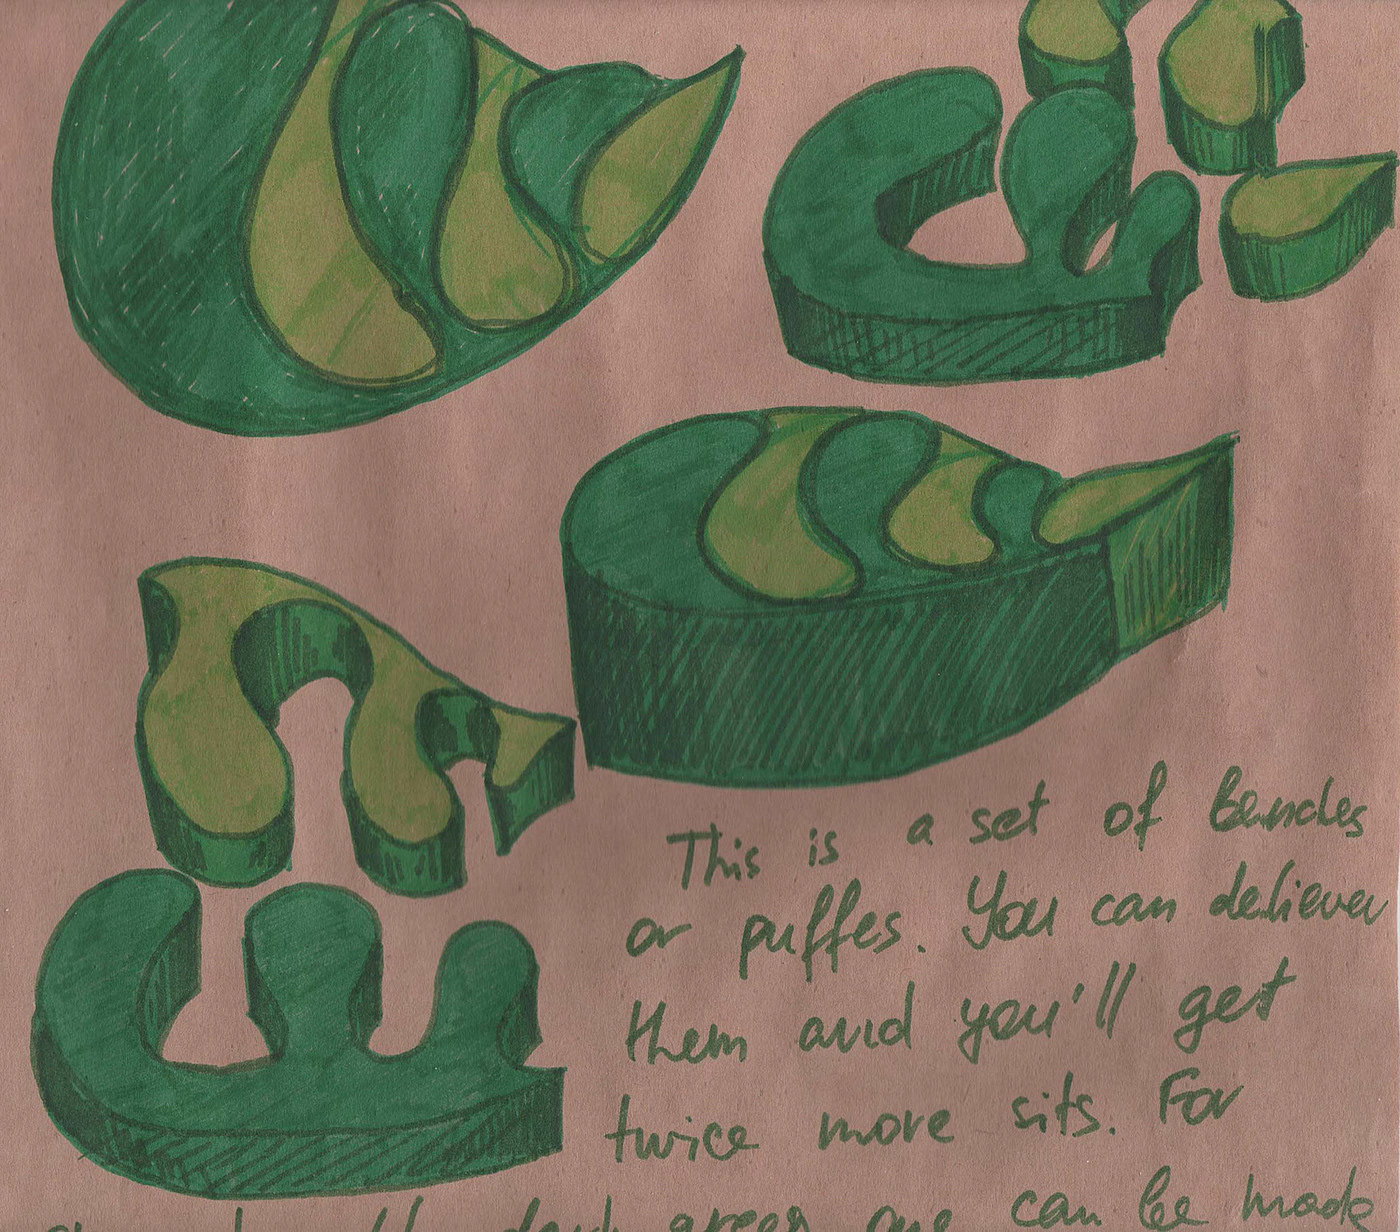 This is a set of bendes
or puffes. You can deliever
them and you'll get
twice more sits. For
dark green one can be made